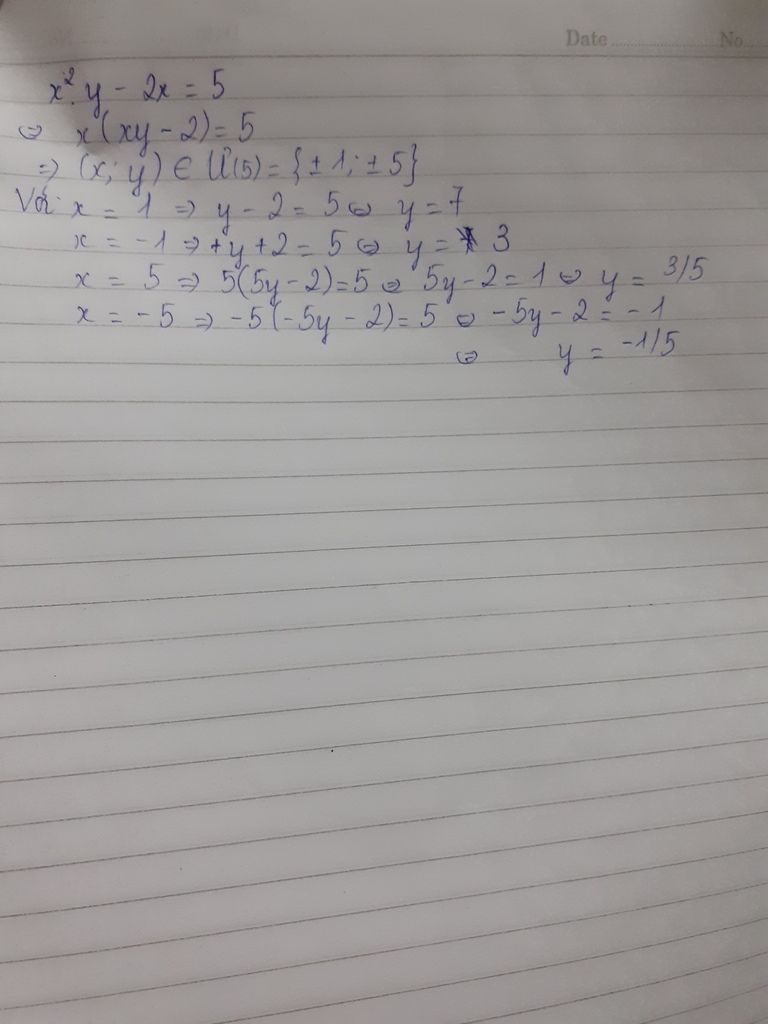 Date ............ No
x².y - 2x = 5
⇔ x(xy - 2) = 5
⇒ (x; y) ∈ Ư(5) = {±1; ±5}
Với x = 1 ⇒ y - 2 = 5 ⇔ y = 7
x = -1 ⇒ +y + 2 = 5 ⇔ y = 3
x = 5 ⇒ 5(5y - 2) = 5 ⇔ 5y - 2 = 1 ⇔ y = 3/5
x = -5 ⇒ -5(-5y - 2) = 5 ⇔ -5y - 2 = -1
⇔ y = -1/5